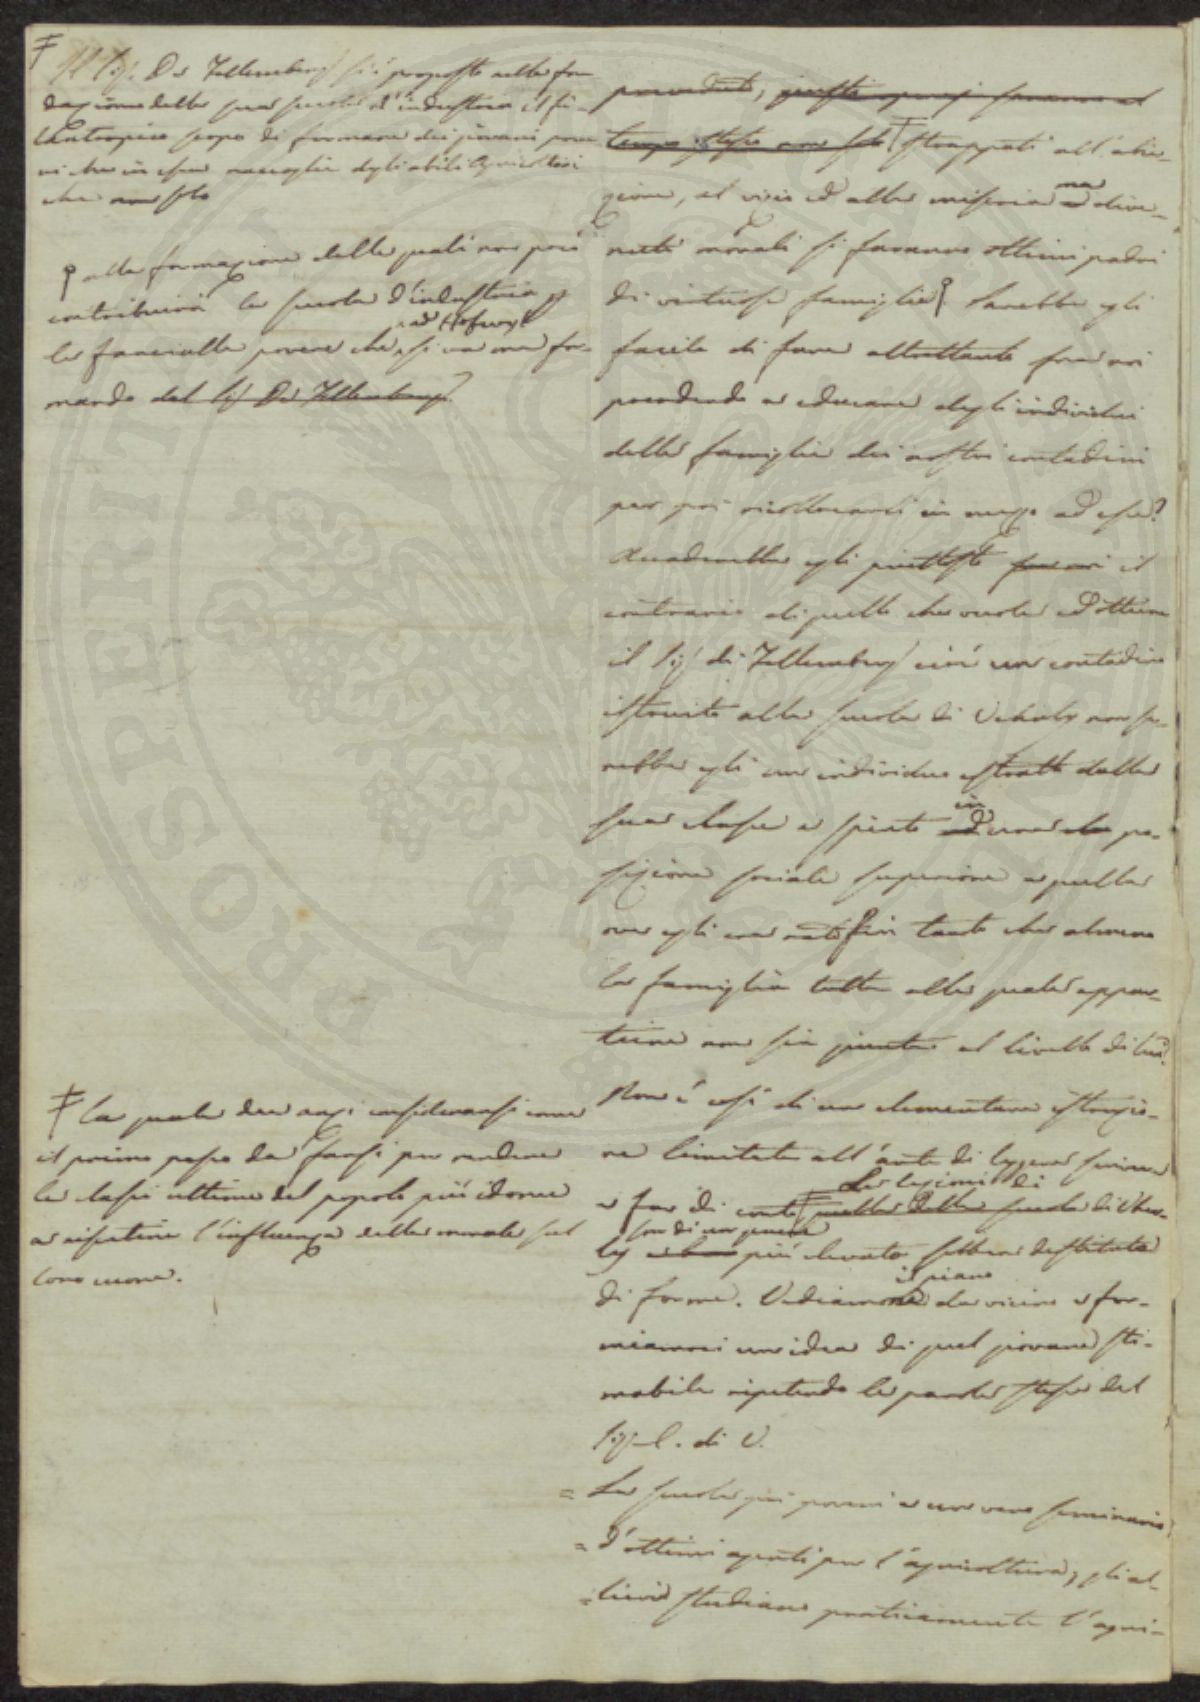 Il Sig. De Fellemberg si è proposto nella fon
dazione della sua scuola d'industria il fi=
lantropico scopo di formare dei giovani pove
ri che in essa raccoglie degli abili Agricoltori
che non solo
alla formazione delle quali non poco
contribuirà la scuola d'industria
ad Hofwyl
le fanciulle povere che si va ora for=
mando dal Sig De Fellemberg
la quale dee anzi considerarsi come
il primo passo da farsi per rendere
le classi ultime del popolo più idonee
a risentire l'influenza della morale sul
loro cuore.
provveduti, questi
tempo stesso non solo strappati all'abie=
zione, al vizio ed alla miseria ma dive=
nuti morali si faranno ottimi padri
di virtuose famiglie Sarebbe egli
facile di fare altrettanto fra noi
prendendo a educare degli individui
dalle famiglie dei nostri contadini
per poi ricollocarli in mezzo ad esse?
Accaderebbe egli piuttosto fra noi il
contrario di quello che vuole ed ottiene
il Sig di Fellemberg cioè un contadino
istruito alla scuola di Vehrly non sa=
rebbe egli un individuo estratto dalla
sua classe e spinto in una po=
sizione sociale superiore a quella
ove egli era nato fin tanto che almeno
la famiglia tutta alla quale appar=
tiene non sia giunta al livello di lui?
Non è così di una elementare istruzio=
ne limitata all'arte di leggere scrivere
Le lezioni di
e far di conto quella della scuola di Vher=
son di un genere
ly più elevato sebbene destituta
il piano
di forme. Vediamone da vicino e for=
miamoci un idea di quel giovane sti=
mabile ripetendo le parole stesse del
Sig. C. di V.
= La scuola pei poveri è un vero seminario
= d'ottimi agenti per l'agricoltura, gli al=
= lievi studiano praticamente l'agri=
PROSPERITA